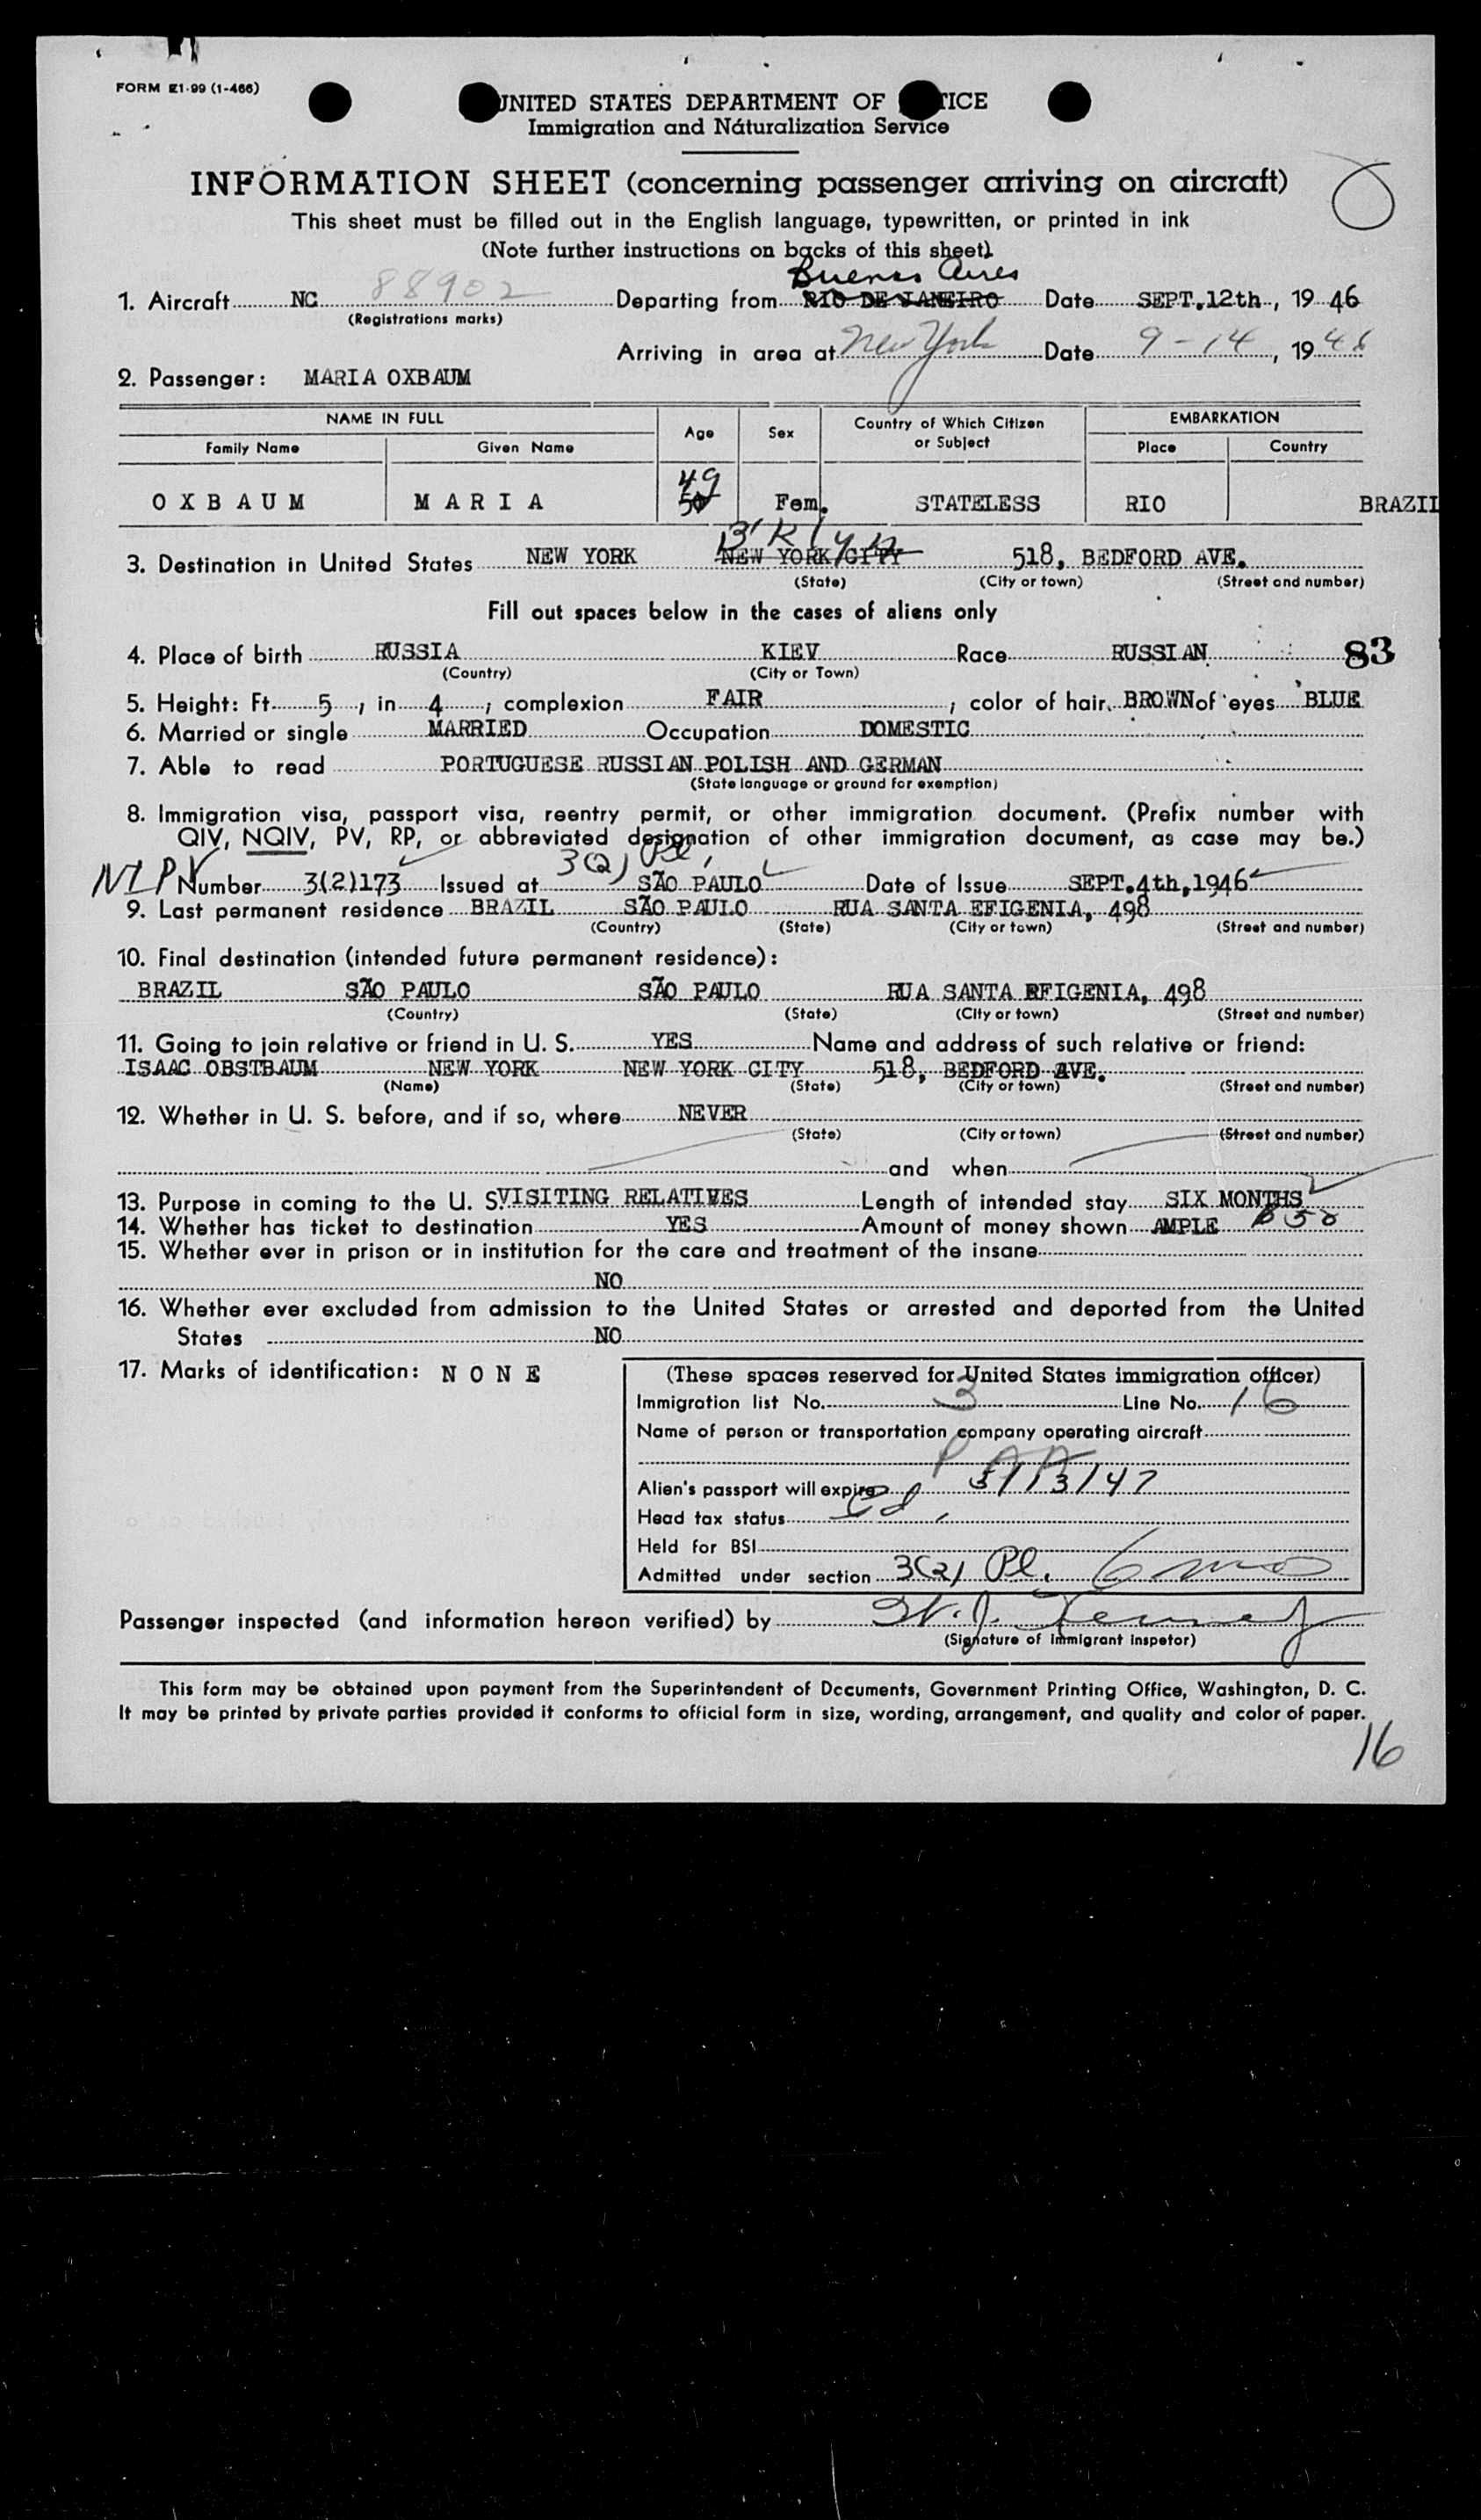 FORM E1-99 (1-466)
UNITED STATES DEPARTMENT OF TICE
Immigration and Naturalization Service
INFORMATION SHEET (concerning passenger arriving on aircraft)
This sheet must be filled out in the English language, typewritten, or printed in ink
(Note further instructions on backs of this sheet).
Buenos Aires
1. Aircraft NC 88902 Departing from RIO DE JANEIRO Date SEPT.12th, 19 46
(Registrations marks)
Arriving in area at New York Date 9-14, 1946
2. Passenger: MARIA OXBAUM
NAME IN FULL Age Sex Country of Which Citizen or Subject EMBARKATION
Family Name Given Name Place Country
49
OXBAUM MARIA 50 Fem. STATELESS RIO BRAZIL
B'klyn
3. Destination in United States NEW YORK NEW YORK CITY 518, BEDFORD AVE.
(State) (City or town) (Street and number)
Fill out spaces below in the cases of aliens only
4. Place of birth RUSSIA KIEV Race RUSSIAN 83
(Country) (City or Town)
5. Height: Ft. 5, in 4; complexion FAIR, color of hair BROWN of eyes BLUE
6. Married or single MARRIED Occupation DOMESTIC
7. Able to read PORTUGUESE RUSSIAN POLISH AND GERMAN
(State language or ground for exemption)
8. Immigration visa, passport visa, reentry permit, or other immigration document. (Prefix number with
QIV, NQIV, PV, RP, or abbreviated designation of other immigration document, as case may be.)
3(2) Pl.
Number 3(2)173 Issued at SÃO PAULO Date of Issue SEPT.4th,1946
9. Last permanent residence BRAZIL SÃO PAULO RUA SANTA EFIGENIA, 498
(Country) (State) (City or town) (Street and number)
10. Final destination (intended future permanent residence):
BRAZIL SÃO PAULO SÃO PAULO RUA SANTA EFIGENIA, 498
(Country) (State) (City or town) (Street and number)
11. Going to join relative or friend in U. S. YES Name and address of such relative or friend:
ISAAC OBSTBAUM NEW YORK NEW YORK CITY 518, BEDFORD AVE.
(Name) (State) (City or town) (Street and number)
12. Whether in U. S. before, and if so, where NEVER
(State) (City or town) (Street and number)
and when
13. Purpose in coming to the U. S. VISITING RELATIVES Length of intended stay SIX MONTHS
14. Whether has ticket to destination YES Amount of money shown AMPLE $50
15. Whether ever in prison or in institution for the care and treatment of the insane
NO
16. Whether ever excluded from admission to the United States or arrested and deported from the United
States NO
17. Marks of identification: NONE
(These spaces reserved for United States immigration officer)
Immigration list No. 3 Line No. 16
Name of person or transportation company operating aircraft
PAA
Alien's passport will expire 3/13/47
Head tax status
Held for BSI
Admitted under section 3(2) Pl. 6 mo
Passenger inspected (and information hereon verified) by
(Signature of Immigrant Inspetor)
This form may be obtained upon payment from the Superintendent of Documents, Government Printing Office, Washington, D. C.
It may be printed by private parties provided it conforms to official form in size, wording, arrangement, and quality and color of paper.
16